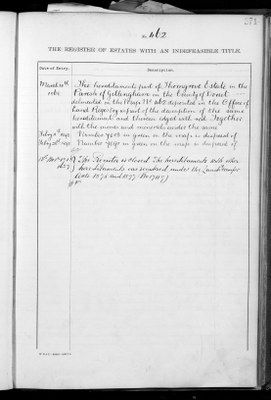 No 462
THE REGISTER OF ESTATES WITH AN INDEFEASIBLE TITLE.
Date of Entry.
Description.
The hereditaments part of Thorngrove Estate in the
Parish of Gillingham in the County of Dorset
delineated in the Map No 462 deposited in the Office of
Land Registry as part of the description of the same
hereditaments and therein edged with red Together
with the mines and minerals under the same
Number in green in the map is disposed of
Number in green in the map is disposed of
The Register is closed. The hereditaments with other
hereditaments was registered under the Land Transfer
Acts 1875 and 1897